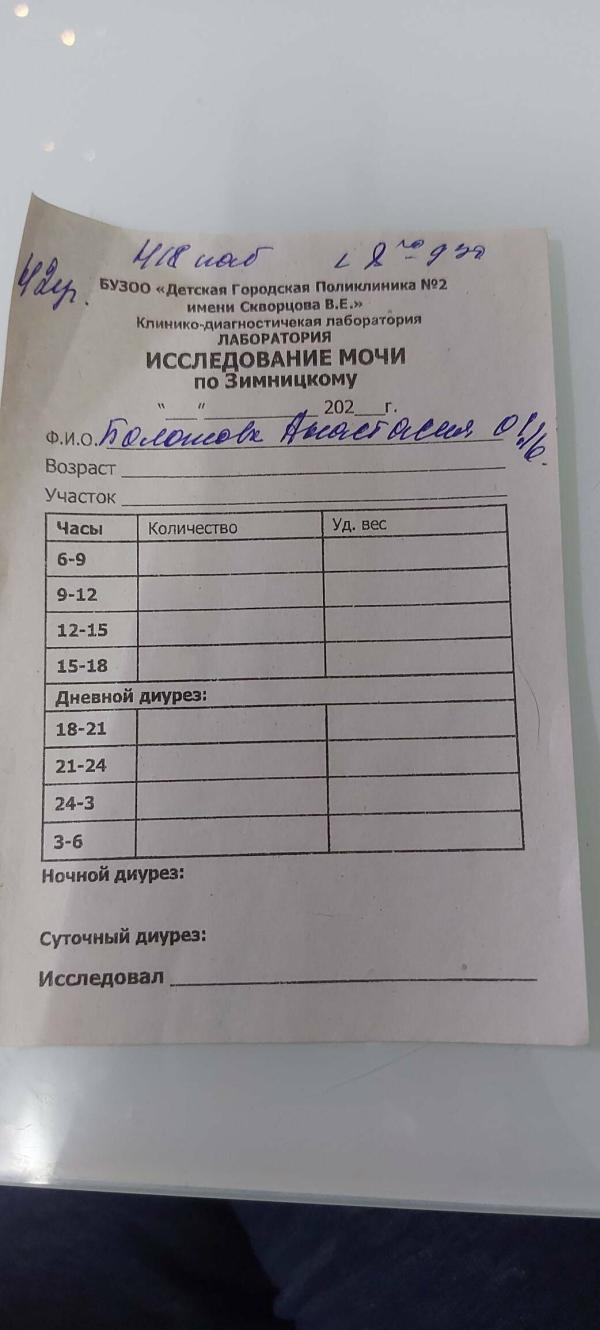 418 каб
БУЗОО «Детская Городская Поликлиника №2
имени Скворцова В.Е.»
Клинико-диагностичекая лаборатория
ЛАБОРАТОРИЯ
ИССЛЕДОВАНИЕ МОЧИ
по Зимницкому
"___"____________ 202___г.
Ф.И.О. Анастасия
Возраст
Участок
Часы Количество Уд. вес
6-9
9-12
12-15
15-18
Дневной диурез:
18-21
21-24
24-3
3-6
Ночной диурез:
Суточный диурез:
Исследовал